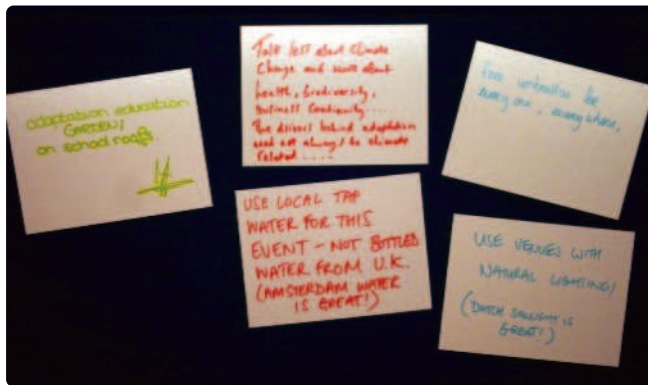 adaptation education
GARDEN!
on school roofs
Talk less about Climate
Change and more about
health, biodiversity,
business continuity....
The drivers behind adaptation
need not always be climate
related.....
everyone, everywhere,
USE LOCAL TAP
WATER FOR THIS
EVENT - NOT BOTTLED
WATER FROM U.K.
(AMSTERDAM WATER
IS GREAT!)
USE VENUES WITH
NATURAL LIGHTING!
(DUTCH SUNLIGHT IS
GREAT!)